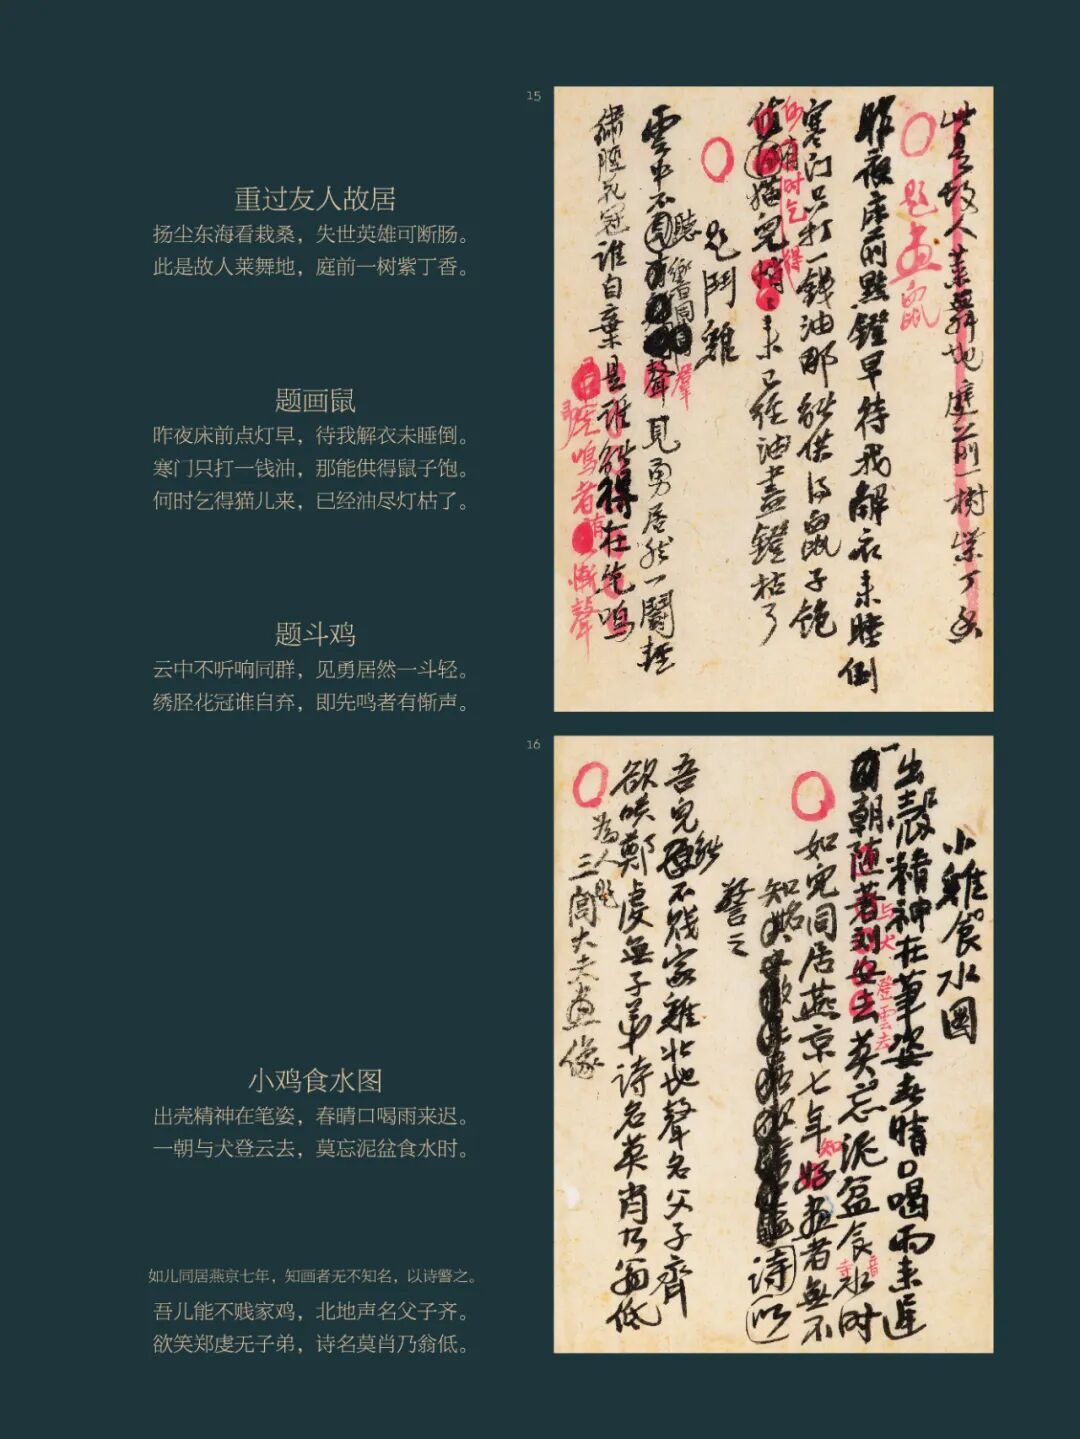 重过友人故居
扬尘东海看栽桑，失世英雄可断肠。
此是故人莱舞地，庭前一树紫丁香。
题画鼠
昨夜床前点灯早，待我解衣未睡倒。
寒门只打一钱油，那能供得鼠子饱。
何时乞得猫儿来，已经油尽灯枯了。
题斗鸡
云中不听响同群，见勇居然一斗轻。
绣胫花冠谁自弃，即先鸣者有惭声。
小鸡食水图
出壳精神在笔姿，春晴口喝雨来迟。
一朝与犬登云去，莫忘泥盆食水时。
如儿同居燕京七年，知画者无不知名，以诗警之。
吾儿能不贱家鸡，北地声名父子齐。
欲笑郑虔无子弟，诗名莫肖乃翁低。
15
此是故人莱舞地庭前一树紫丁香
題畫鼠
昨夜床前點鐙早待我解衣未睡倒
寒门只打一钱油那能供得鼠子飽
何时乞得
猫兒來已经油盡鐙枯了
題鬥雞
雲中不聽響同群見勇居然一鬭輕
繡脛花冠谁自棄是谁能得在先鳴
先鳴者有慚聲
16
小雞食水圖
出殼精神在筆姿春晴口喝雨來遲
一朝随
与犬
登雲去
莫忘泥盆食水时
如兒同居燕京七年知畫者無不
知名
诗以
警之
吾兒能不贱家雞北地聲名父子齊
欲笑鄭虔無子弟诗名莫肖乃翁低
為人題
三閭大夫畫像